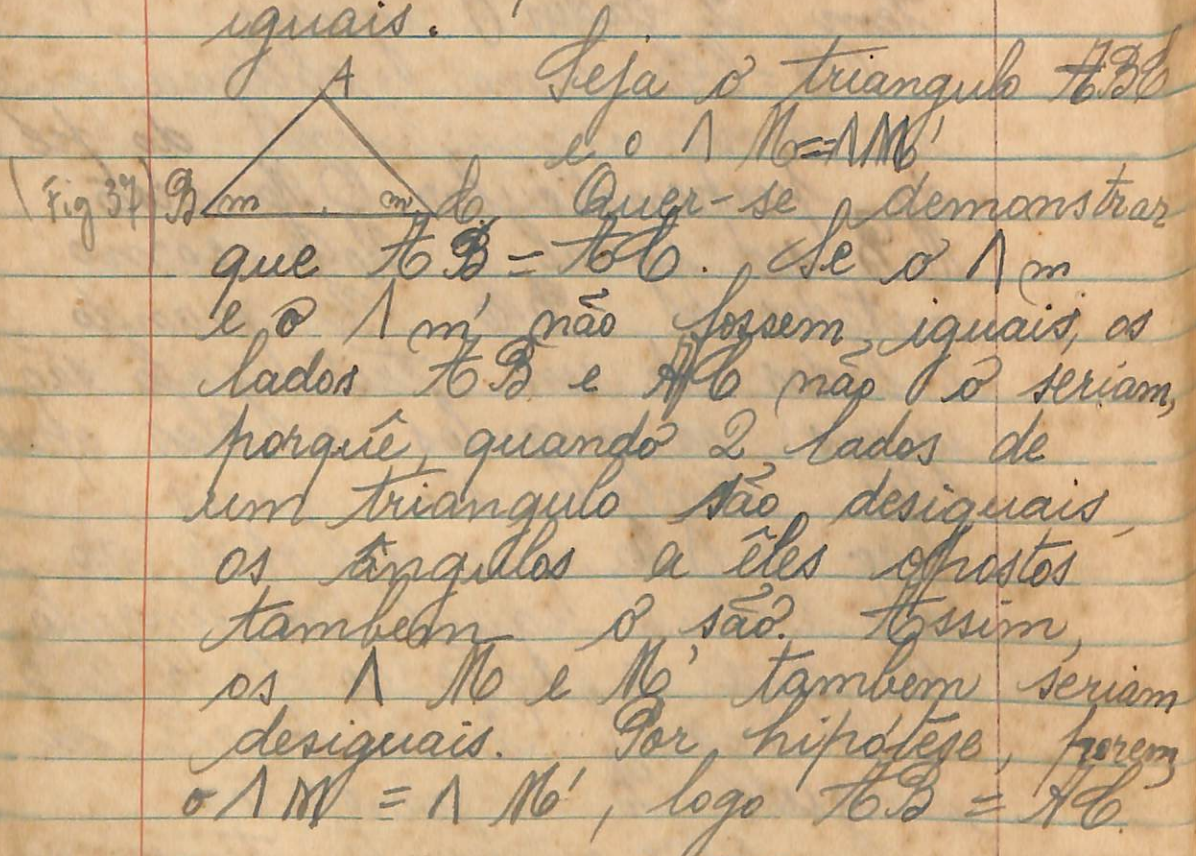 iguais.
A Seja o triangulo ABC
e o ∧ M = ∧ M'
(Fig 37) B m m' C. Quer-se demonstrar
que AB = AC. Se o ∧ m
e o ∧ m' não fossem iguais, os
lados AB e AC não o seriam,
porquê, quando 2 lados de
um triangulo são desiguais,
os ângulos a êles opostos
tambem o são. Assim,
os ∧ M e M' tambem seriam
desiguais. Por hipótese, porem,
o ∧ M = ∧ M', logo AB = AC.